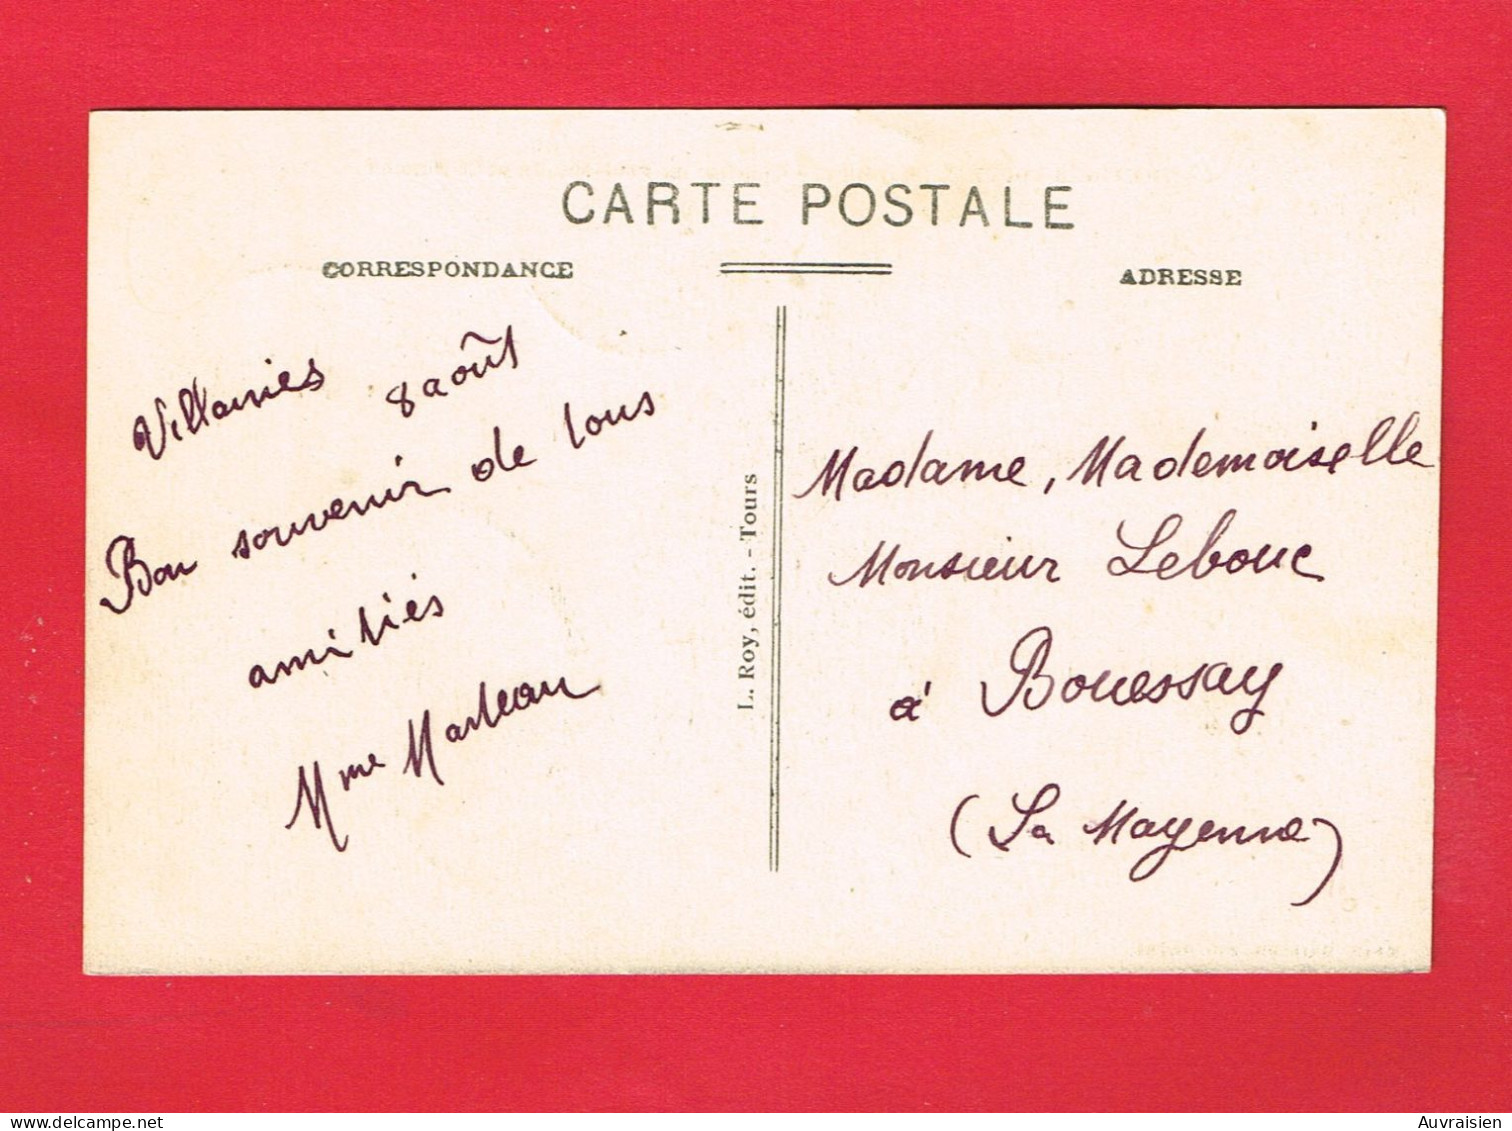 CARTE POSTALE
CORRESPONDANCE
ADRESSE
8 août
Bon souvenir de tous
amitiés
Mme Marteau
L. Roy, édit. - Tours
Madame, Mademoiselle
Monsieur Lebouc
à Bouessay
(La Mayenne)
Auvraisien
delcampe.net